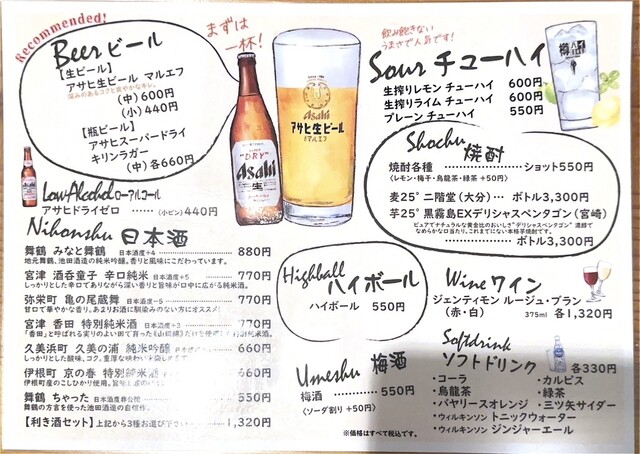 Recommended!
Beer ビール
【生ビール】
アサヒ生ビール マルエフ
深みのあるコクと爽やかなキレ。
(中) 600円
(小) 440円
【瓶ビール】
アサヒスーパードライ
キリンラガー
(中) 各660円
まずは
一杯!
Asahi
DRY
Asahi
生
Asahi
アサヒ生ビール
マルエフ
Low Alcohol ローアルコール
アサヒドライゼロ ……(小ビン) 440円
Nihonshu 日本酒
舞鶴 みなと舞鶴 日本酒度+4 …… 880円
地元舞鶴、池田酒造の純米吟醸。香りと風味にこだわっています。
宮津 酒呑童子 辛口純米 日本酒度+5 …… 770円
しっかりとした辛口でありながら深い香りと旨味が口中に広がる純米酒。
弥栄町 亀の尾蔵舞 日本酒度-5 …… 770円
甘口で華やかな香り。あまりお酒に馴染みのない方にオススメ!
宮津 香田 特別純米酒 日本酒度+3 …… 770円
「香田」と呼ばれる実りのよい田で育った
久美浜町 久美の浦 純米吟醸 …… 660円
しっかりとした味、コク、
伊根町 京の春 特別純米酒 …… 660円
伊根町産のこしひかり使用。
舞鶴 ちゃった 日本酒度非公開 …… 550円
舞鶴の方言を使った池田酒造の自信作。
【利き酒セット】上記から3種お選び下さい …… 1,320円
飲み飽きない
うまさで人気です!
Sour チューハイ
生搾りレモン チューハイ 600円
生搾りライム チューハイ 600円
プレーン チューハイ 550円
樽
Shochu 焼酎
焼酎各種 ……………… ショット550円
〈レモン・梅干・烏龍茶・緑茶 +50円〉
麦25° 二階堂(大分) … ボトル3,300円
芋25° 黒霧島EXデリシャスペンタゴン(宮崎)
ピュアでナチュラルな黄金比のおいしさ"デリシャスペンタゴン"濃醇で
なめらかな口当たり。これまでにない本格芋焼酎です。
……………… ボトル3,300円
Highball
ハイボール
ハイボール 550円
Wine ワイン
ジェンティモン ルージュ・ブラン
(赤・白) 375ml 各1,320円
Umeshu 梅酒
梅酒 ……………… 550円
〈ソーダ割り +50円〉
Softdrink
ソフトドリンク 各330円
・コーラ ・カルピス
・烏龍茶 ・緑茶
・バヤリースオレンジ ・三ツ矢サイダー
・ウィルキンソン トニックウォーター
・ウィルキンソン ジンジャーエール
※価格はすべて税込です。